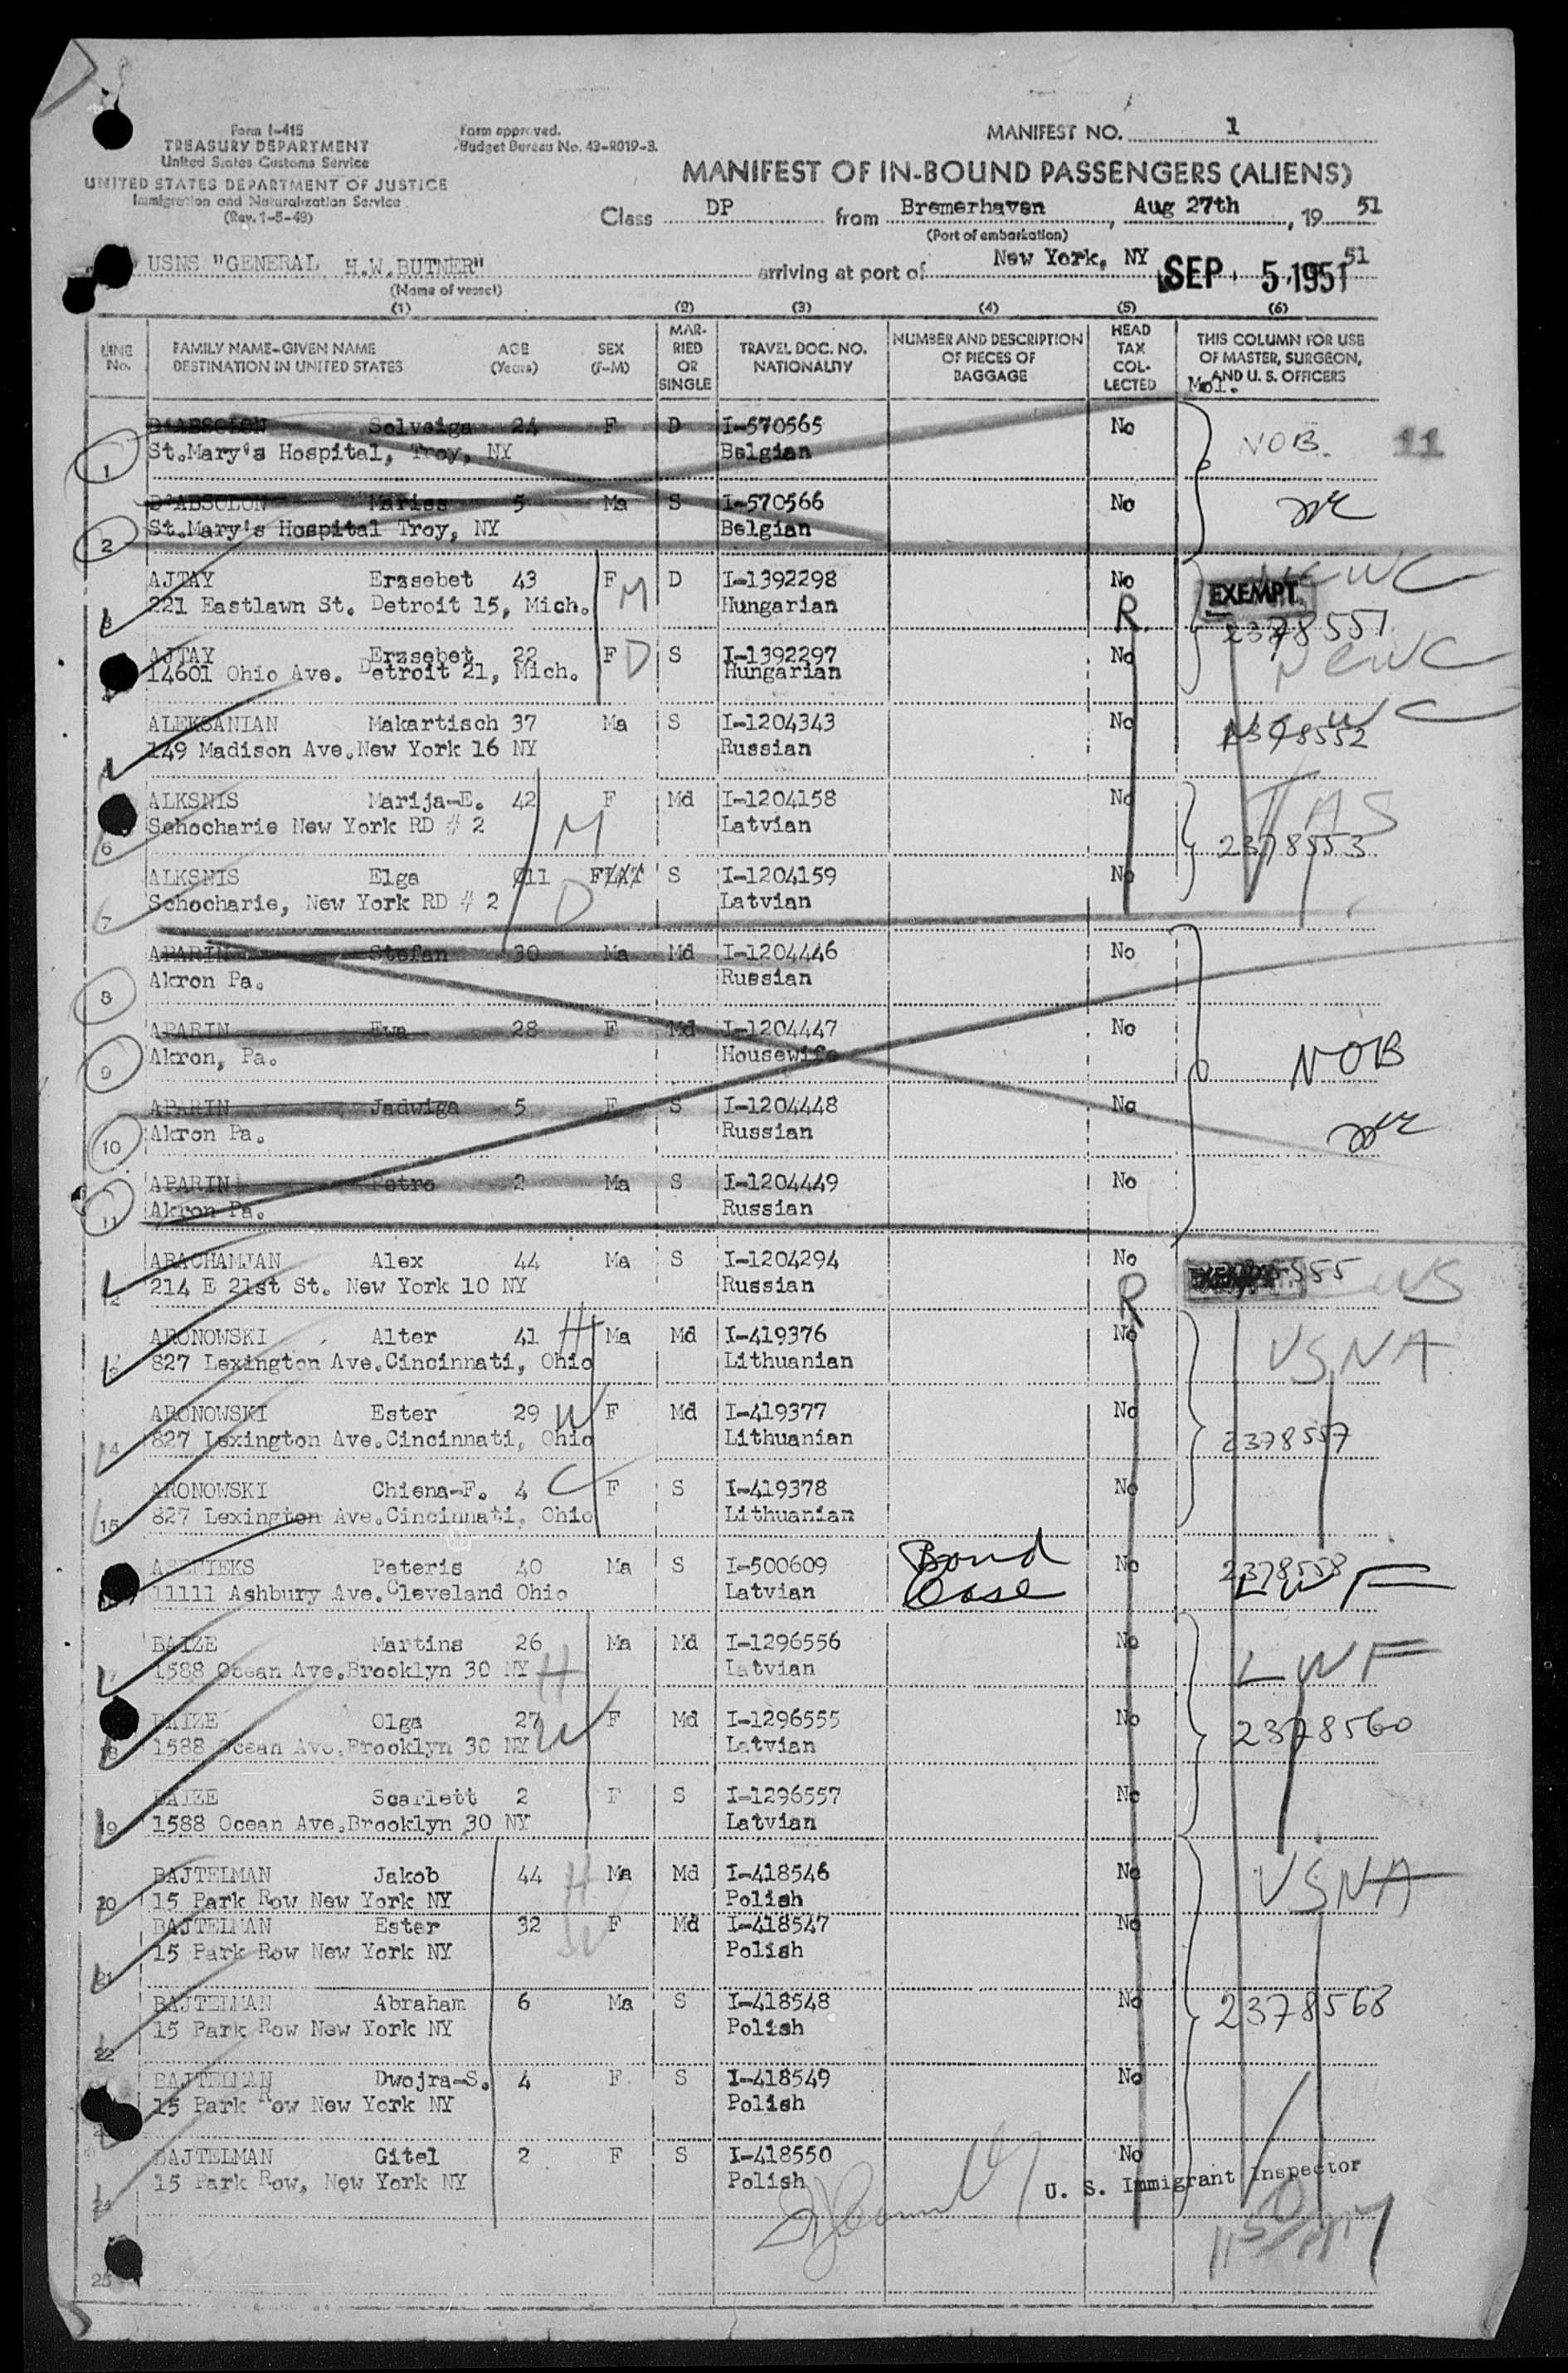 Form I-415
TREASURY DEPARTMENT
United States Customs Service
UNITED STATES DEPARTMENT OF JUSTICE
Immigration and Naturalization Service
(Rev. 1-5-49)
Form approved.
Budget Bureau No. 43-R019-3.
MANIFEST NO. 1
MANIFEST OF IN-BOUND PASSENGERS (ALIENS)
Class DP from Bremerhaven, Aug 27th, 19 51
(Port of embarkation)
USNS "GENERAL H.W.BUTNER" arriving at port of New York, NY SEP 5 1951 51
(Name of vessel)
(1) (2) (3) (4) (5) (6)
LINE No. FAMILY NAME-GIVEN NAME DESTINATION IN UNITED STATES AGE (Years) SEX (F-M) MARRIED OR SINGLE TRAVEL DOC. NO. NATIONALITY NUMBER AND DESCRIPTION OF PIECES OF BAGGAGE HEAD TAX COLLECTED THIS COLUMN FOR USE OF MASTER, SURGEON, AND U. S. OFFICERS
Mol.
1 D'ABSOLON Solveiga 24 F D I-570565 No NOB. 11
St.Mary's Hospital, Troy, NY Belgian
2 D'ABSOLON Mariss 5 Ma S I-570566 No
St.Mary's Hospital Troy, NY Belgian
3 AJTAY Erzsebet 43 F M D I-1392298 No NCWC
221 Eastlawn St. Detroit 15, Mich. Hungarian R EXEMPT 2378551
AJTAY Erzsebet 22 F D S I-1392297 No NCWC
14601 Ohio Ave. Detroit 21, Mich. Hungarian
ALEKSANIAN Makartisch 37 Ma S I-1204343 No 2378552
149 Madison Ave.New York 16 NY Russian
6 ALKSNIS Marija-E. 42 F Md I-1204158 No
Schocharie New York RD # 2 M Latvian 2378553
7 ALKSNIS Elga 11 F S I-1204159 No
Schocharie, New York RD # 2 D Latvian
8 APARIN Stefan 30 Ma Md I-1204446 No
Akron Pa. Russian
9 APARIN Ewa 28 F Md I-1204447 No NOB
Akron, Pa. Housewife
10 APARIN Jadwiga 5 F S I-1204448 No
Akron Pa. Russian
11 APARIN Petro 2 Ma S I-1204449 No
Akron Pa. Russian
12 ARACHAMJAN Alex 44 Ma S I-1204294 No
214 E 21st St. New York 10 NY Russian R
ARONOWSKI Alter 41 H Ma Md I-419376 No USNA
827 Lexington Ave.Cincinnati, Ohio Lithuanian
14 ARONOWSKI Ester 29 W F Md I-419377 No
827 Lexington Ave.Cincinnati, Ohio Lithuanian 2378557
15 ARONOWSKI Chiena-F. 4 C F S I-419378 No
827 Lexington Ave.Cincinnati, Ohio Lithuanian
ASENIEKS Peteris 40 Ma S I-500609 Bond No 2378558
11111 Ashbury Ave.Cleveland Ohio Latvian Case LWF
BAIZE Martins 26 Ma Md I-1296556 No LWF
1588 Ocean Ave.Brooklyn 30 NY H Latvian
18 BAIZE Olga 27 W F Md I-1296555 No 2378560
1588 Ocean Ave.Brooklyn 30 NY Latvian
19 BAIZE Scarlett 2 F S I-1296557 No
1588 Ocean Ave.Brooklyn 30 NY Latvian
20 BAJTELMAN Jakob 44 H Ma Md I-418546 No USNA
15 Park Row New York NY Polish
21 BAJTELMAN Ester 32 W F Md I-418547 No
15 Park Row New York NY Polish
22 BAJTELMAN Abraham 6 Ma S I-418548 No 2378568
15 Park Row New York NY Polish
BAJTELMAN Dwojra-S. 4 F S I-418549 No
15 Park Row New York NY Polish
24 BAJTELMAN Gitel 2 F S I-418550 No
15 Park Row, New York NY Polish
U. S. Immigrant Inspector
25